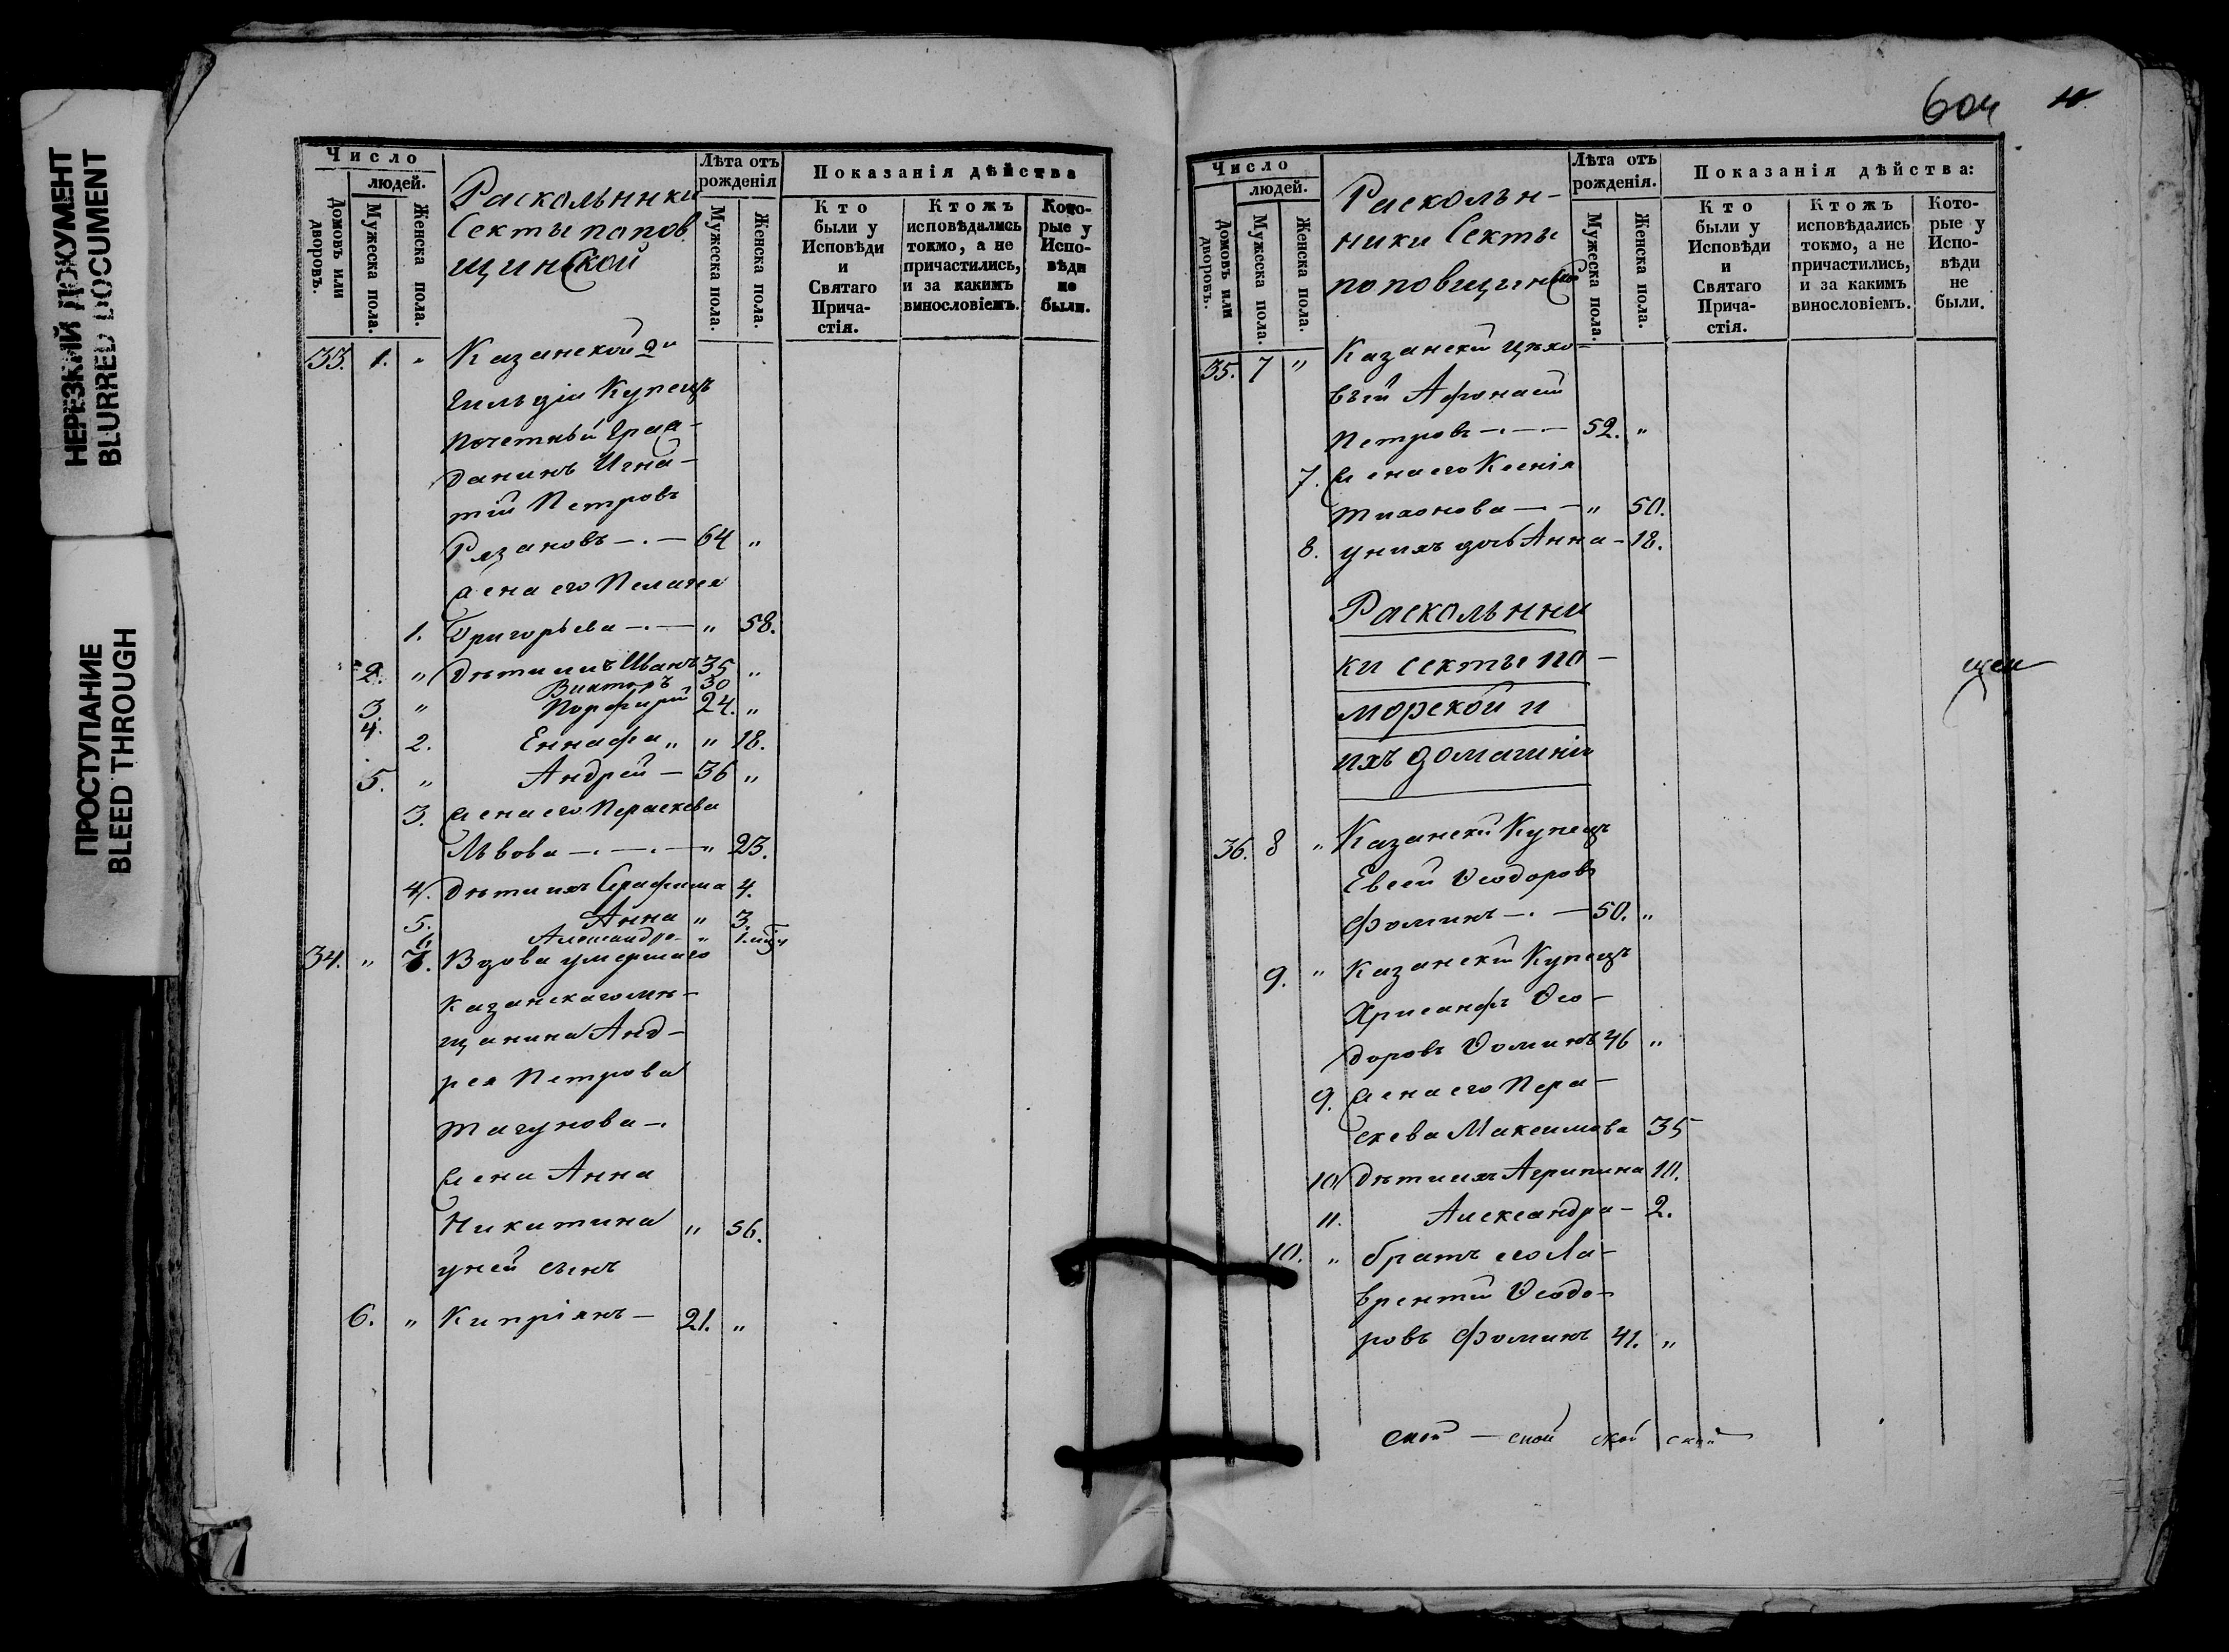 НЕРЕЗКИЙ ДОКУМЕНТ
BLURRED DOCUMENT
ПРОСТУПАНИЕ
BLEED THROUGH
Число
людей.
Домовъ или дворовъ.
Мужеска пола.
Женска пола.
Раскольники
Секты попов
щинской
Лѣта отъ рожденія
Мужеска пола.
Женска пола.
Показанія дѣйства
Кто были у Исповѣди и Святаго Прича-стія.
Ктожъ исповѣдались токмо, а не причастились, и за какимъ винословіемъ.
Кото-рые у Испо-вѣди не были.
33. 1. " Казанской 2й
гильдіи Купецъ
Почетный граж-
данинъ Игна-
тій Петровъ
Рязановъ —.— 64 "
жена его Пелагея
1. Григорьева —.— " 58.
2. " Дѣти ихъ Иванъ 35 "
Викторъ 30
3. " Порфирій 24. "
4. 2. " " 18.
5. " Андрей — 36 "
3. жена его Параскева
Львова —.—.— " 23.
4. Дѣти ихъ Серафима 4.
5. Анна " 3.
6. Александра "
34. " 7. Вдова умершаго
Казанскаго мѣ-
щанина Анд-
рея Петрова
Тагунова —.
жена Анна
Никитина " 56.
у ней сынъ
6. " Кипріянъ — 21. "
604
Число
людей.
Домовъ или дворовъ.
Мужеска пола.
Женска пола.
Расколь-
ники Секты
поповщинской
Лѣта отъ рожденія.
Мужеска пола.
Женска пола.
Показанія дѣйства:
Кто были у Исповѣди и Святаго Прича-стія.
Ктожъ исповѣдались токмо, а не причастились, и за какимъ винословіемъ.
Кото-рые у Испо-вѣди не были.
35. 7 " Казанскій цѣхо-
вый Афонасій
Петровъ —.— 52. "
7. жена его Ксенія
Тихонова —.— " 50.
8. у нихъ дочь Анна — 18.
Раскольни
ки секты по-
морской и
ихъ домашніи
36. 8 " Казанскій Купецъ
Евсей Ѳеодоровъ
Фоминъ —.— 50. "
9. " Казанскій Купецъ
Хрисанфъ Ѳео-
доровъ Ѳоминъ 46 "
9. жена его Пара-
скева Максимова 35
10 Дѣти ихъ Агрипина 10.
11. Александра — 2.
10. " братъ его Ла-
врентій Ѳеодо-
ровъ Фоминъ 41. "
ской — ской ской ской